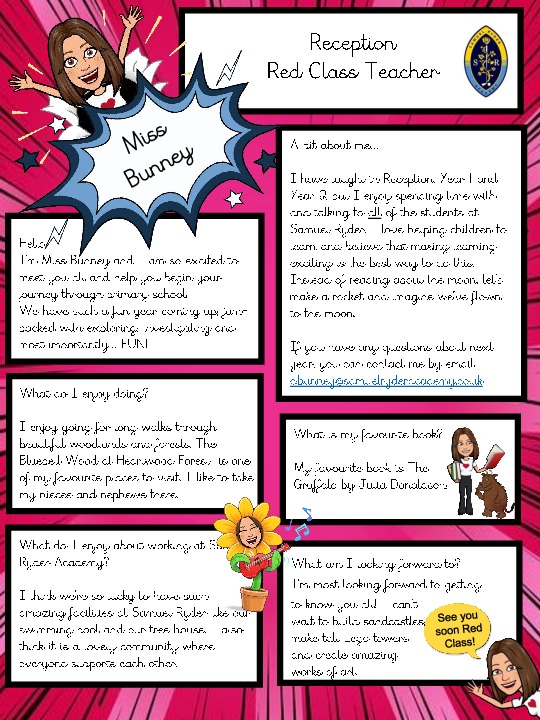 Reception
Red Class Teacher
Miss
Bunney
Hello
I'm Miss Bunney and I am so excited to
meet you all and help you begin your
journey through primary school.
We have such a fun year coming up, jam-
packed with exploring, investigating and
most importantly... FUN!
A bit about me...
I have taught in Reception, Year 1 and
Year 2 but I enjoy spending time with
and talking to all of the students at
Samuel Ryder. I love helping children to
learn and believe that making learning
exciting is the best way to do this.
Instead of reading about the moon, let's
make a rocket and imagine we've flown
to the moon.
If you have any questions about next
year, you can contact me by email
@samuelryderacademy.co.uk
What do I enjoy doing?
I enjoy going for long walks through
beautiful woodlands and forests. The
Bluebell Wood at Heartwood Forest is one
of my favourite places to visit. I like to take
my nieces and nephews there.
What is my favourite book?
My favourite book is The
Gruffalo by Julia Donaldson
What do I enjoy about working at
Ryder Academy?
I think we're so lucky to have such
amazing facilities at Samuel Ryder like our
swimming pool and our tree house. I also
think it is a lovely community where
everyone supports each other.
What am I looking forward to?
I'm most looking forward to getting
to know you all! I can't
wait to build sandcastles,
make tall Lego towers
and create amazing
works of art.
See you
soon Red
Class!